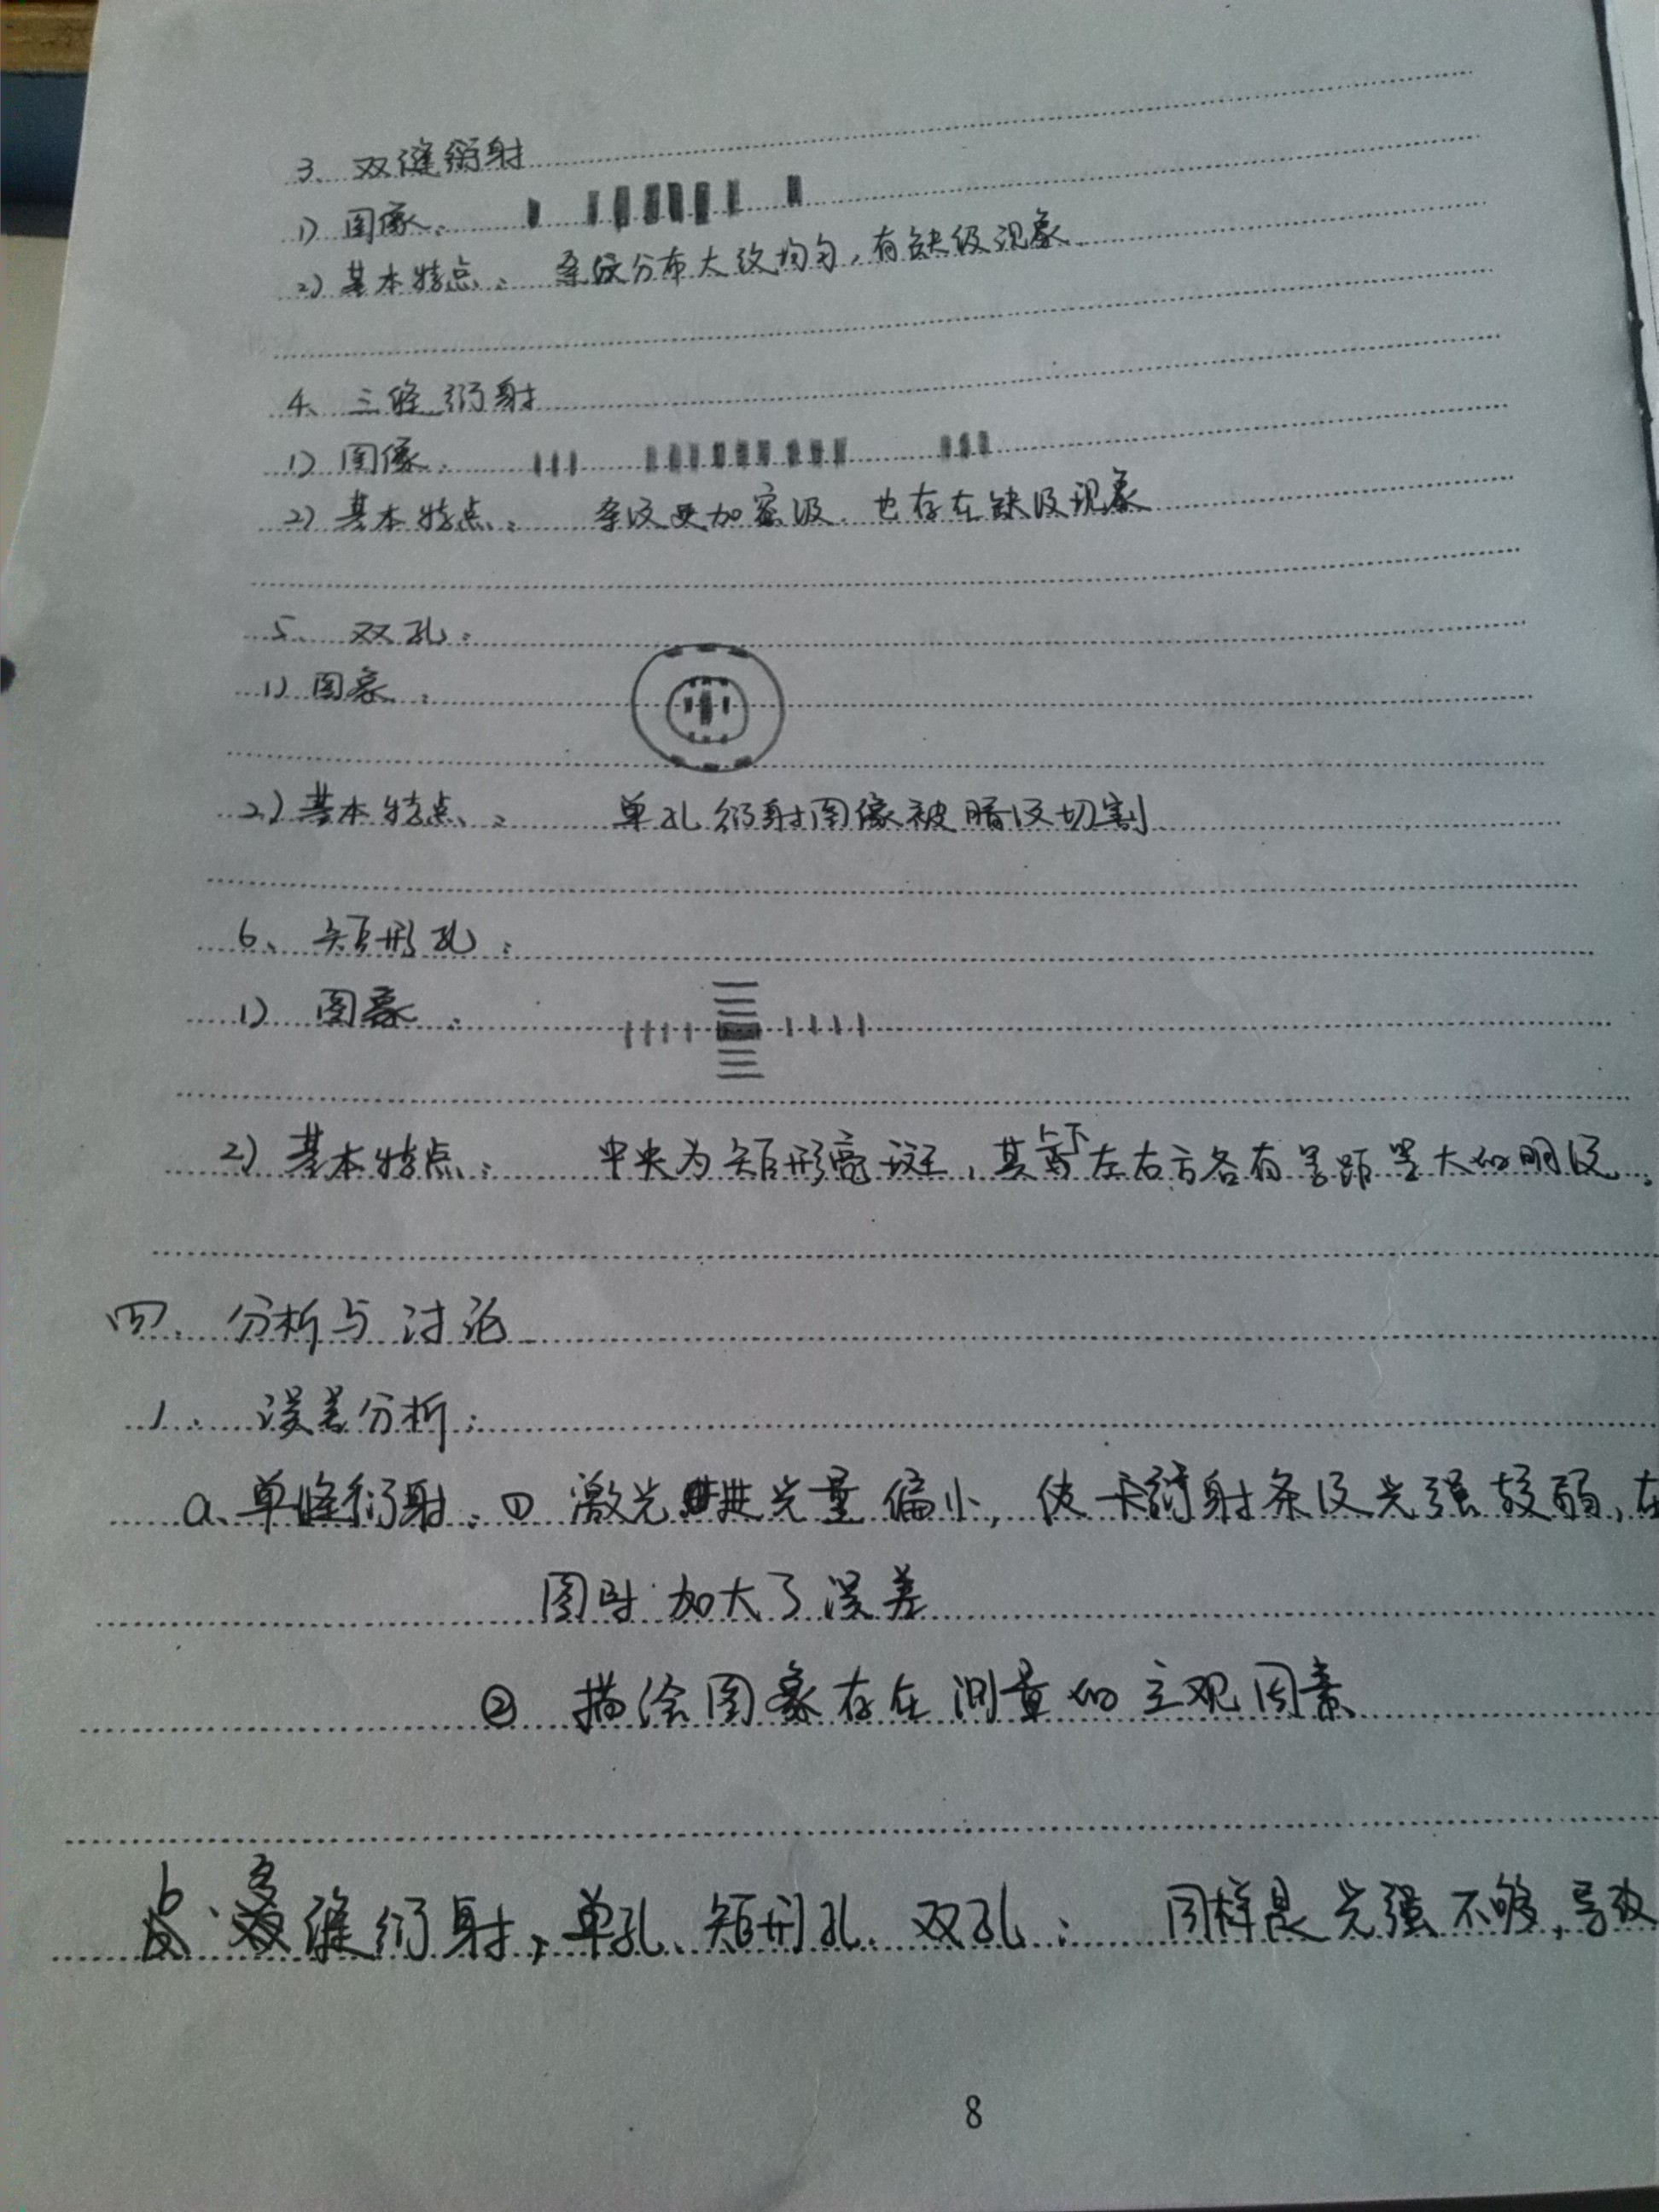 3、双缝衍射
1) 图像:
2) 基本特点: 条纹分布大致均匀,有缺级现象
4、三缝衍射
1) 图像:
2) 基本特点: 条纹更加密级.也存在缺级现象
5、双孔:
1) 图象:
2) 基本特点: 单孔衍射图像被暗纹切割
6、矩形孔:
1) 图象:
2) 基本特点: 中央为矩形亮斑,其上下左右方各有等距 大的明纹.
四、分析与讨论
1. 误差分析:
a、单缝衍射、① 激光 光量偏小, 使 衍射条纹光强较弱,在
图时 加大了误差
② 描绘图象存在测量的主观因素
b. 多缝衍射,单孔、矩形孔、双孔: 同样是光强不够,导致
8